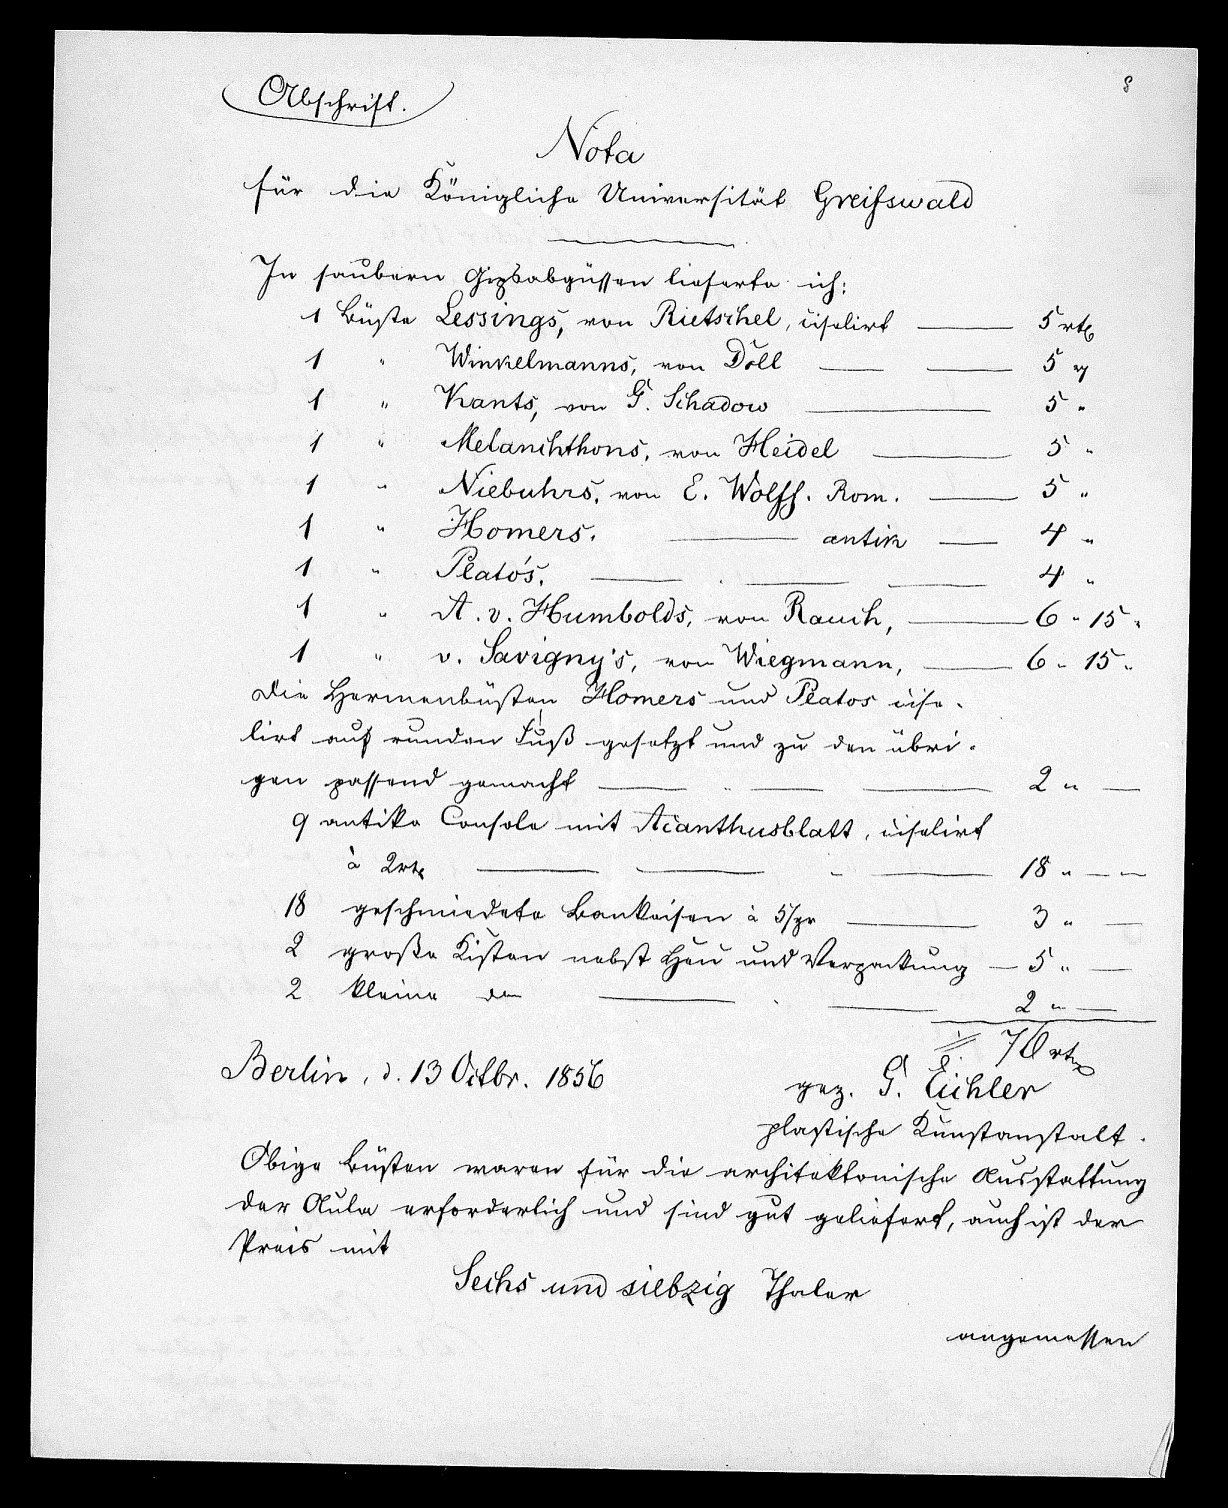 8
Abschrift.
Nota
für die Königliche Universität Greifswald
In saubern Gipsabgüssen lieferte ich:
1 Büste Lessings, von Rietschel, ciselirt — 5 rtl
1 " Winkelmanns, von Döll — — 5 "
1 " Kants, von G. Schadow — 5 "
1 " Melanchthons, von Heidel — 5 "
1 " Niebuhrs, von E. Wolff. Rom. — 5 "
1 " Homers. — antik — 4 "
1 " Plato's. — . — — 4 "
1 " A. v. Humbolds, von Rauch, — 6 " 15 "
1 " v. Savigny's, von Wiegmann, — 6 " 15 "
Die Hermenbüsten Homers und Platos cise-
lirt auf runden Fuß gesetzt und zu den übri-
gen passend gemacht — " — — 2 " —
9 antike Console mit Acanthusblatt, ciselirt
à 2 rtl — — " — 18 " — —
18 geschmiedete Bankeisen à 5 sgr — 3 " —
2 große Kisten nebst Heu und Verpackung — 5 " —
2 kleine do — . — 2 " —
76 rtl
Berlin, d. 13 Octbr. 1856
gez. G. Eichler
plastische Kunstanstalt.
Obige Büsten waren für die architektonische Ausstattung
der Aula erforderlich und sind gut geliefert, auch ist der
Preis mit
Sechs und siebzig Thaler
angemessen